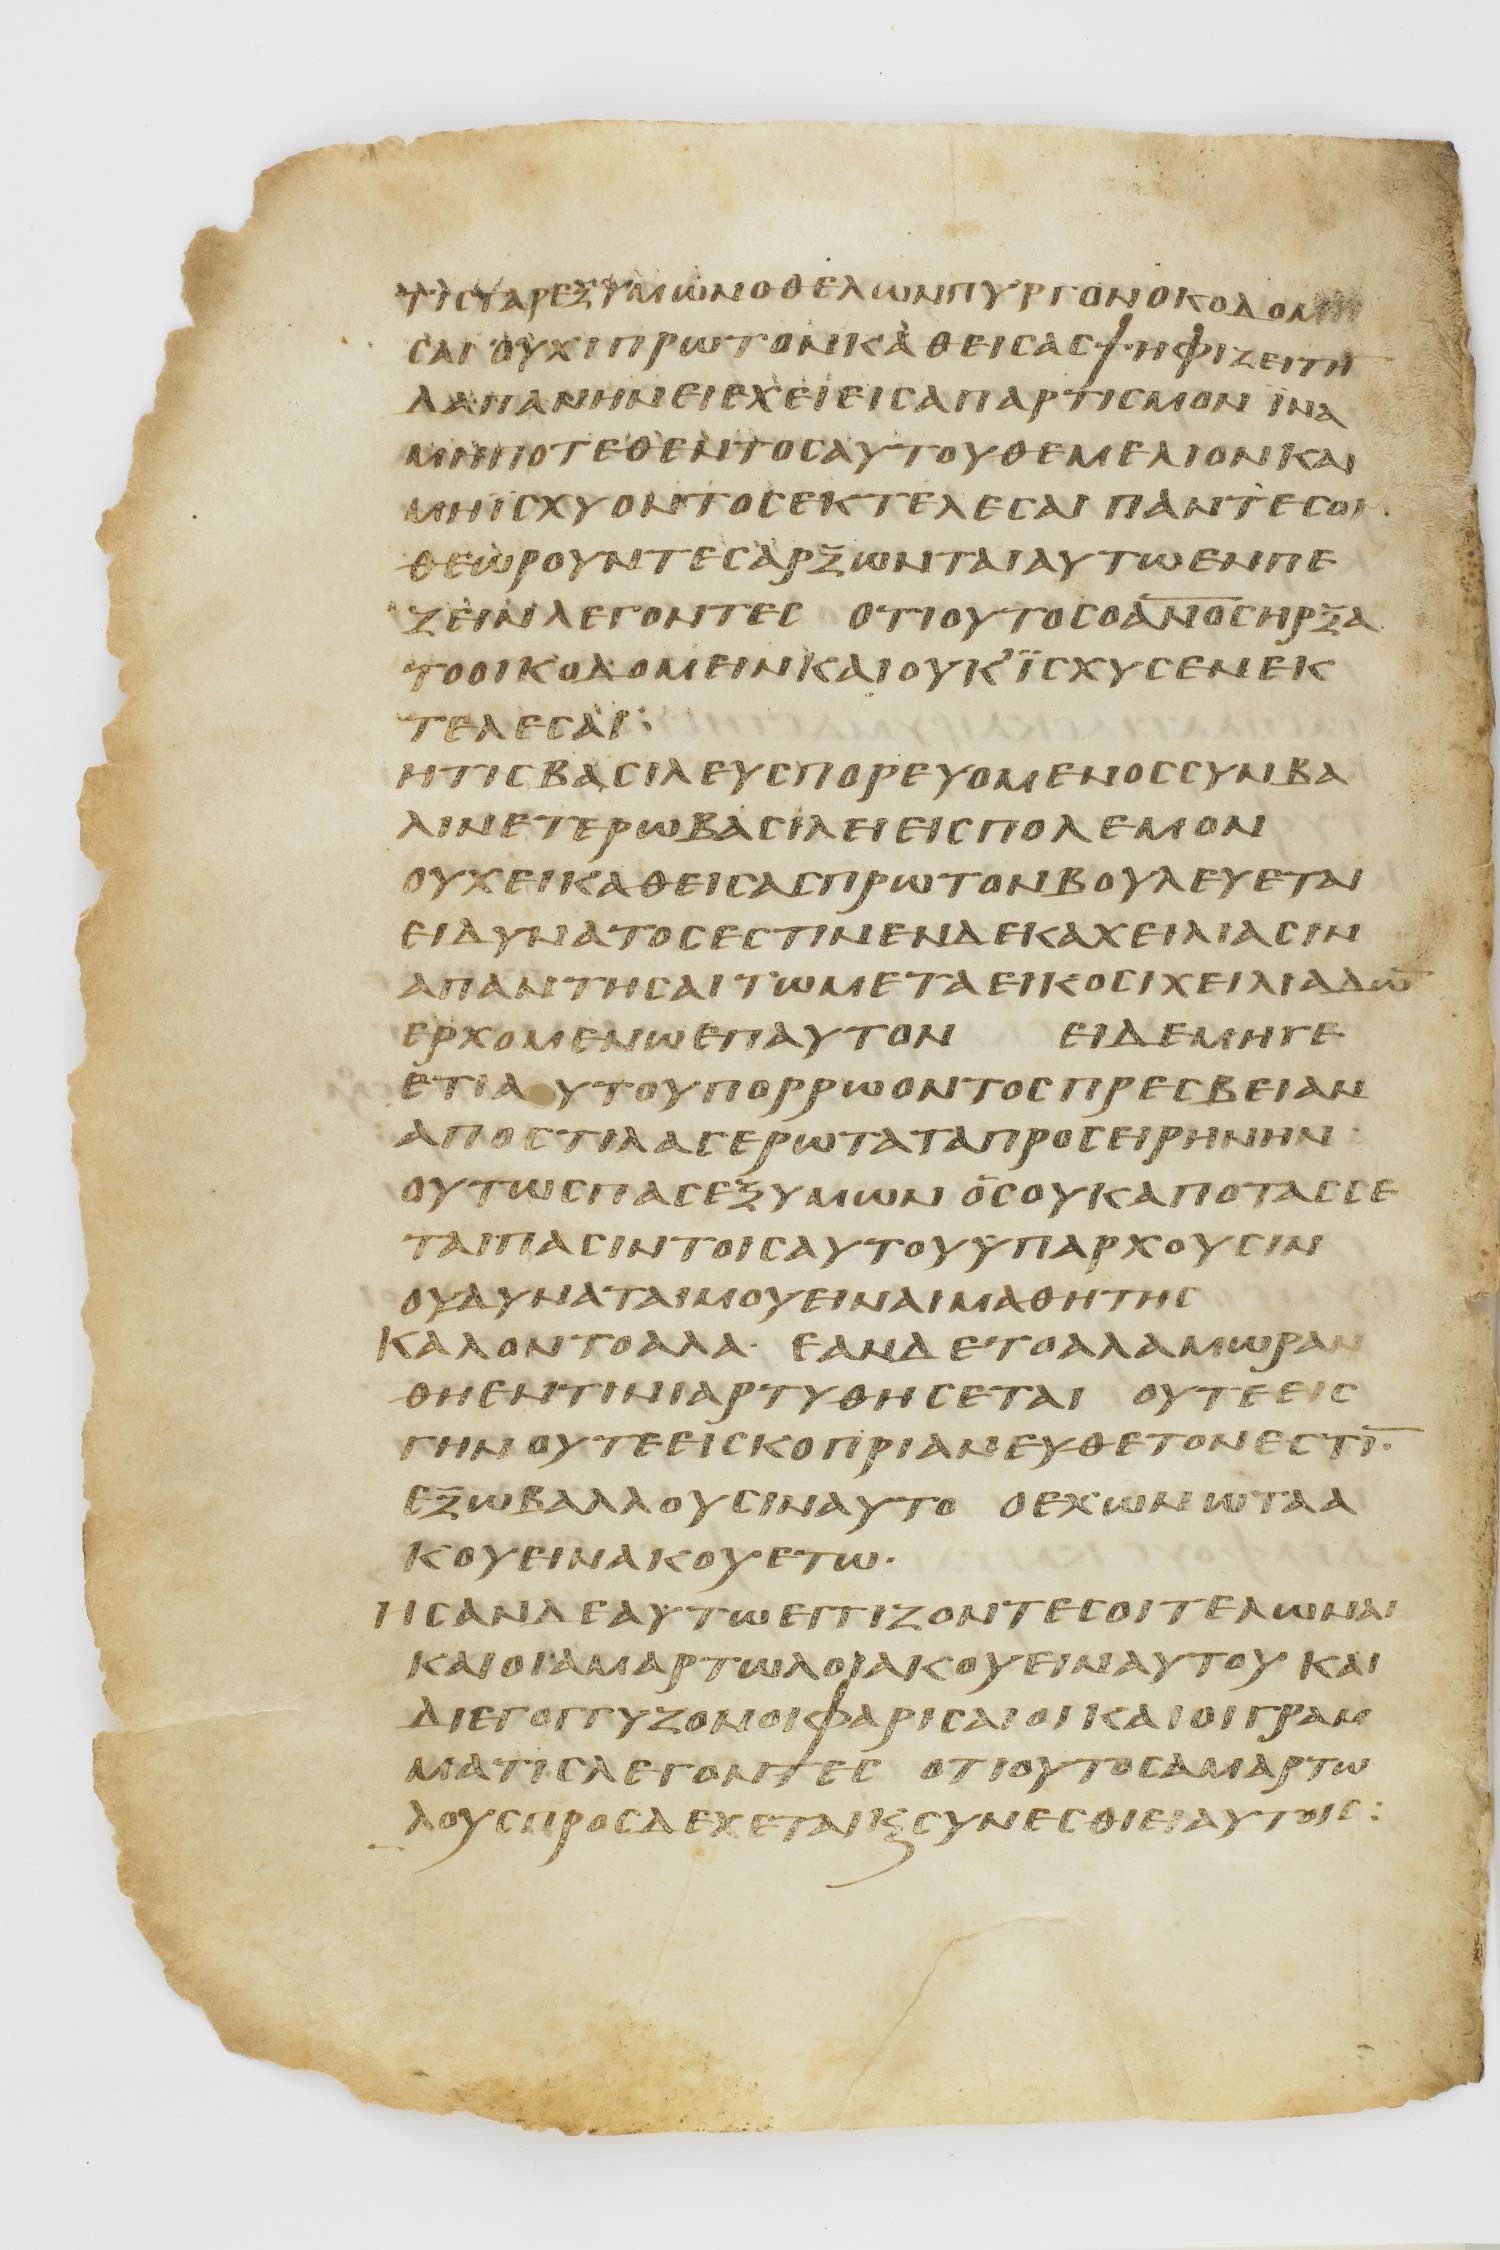 ΤΙCΓΑΡΕΞΥΜΩΝΟΘΕΛΩΝΠΥΡΓΟΝΟΚΟΔΟΜΗ
CΑΙΟΥΧΙΠΡΩΤΟΝΚΑΘΕΙCΑCΨΗΦΙΖΕΙΤΗ
ΔΑΠΑΝΗΝΕΙΕΧΕΙΕΙCΑΠΑΡΤΙCΜΟΝ ΪΝΑ
ΜΗΠΟΤΕΘΕΝΤΟCΑΥΤΟΥΘΕΜΕΛΙΟΝΚΑΙ
ΜΗΙCΧΥΟΝΤΟCΕΚΤΕΛΕCΑΙ ΠΑΝΤΕCΟΙ
ΘΕΩΡΟΥΝΤΕCΑΡΞΩΝΤΑΙΑΥΤΩΕΝΠΕ
ΖΕΙΝΛΕΓΟΝΤΕC ΟΤΙΟΥΤΟCΟΑ̅Ν̅Ο̅CΗΡΞΑ
ΤΟΟΙΚΟΔΟΜΕΙΝΚΑΙΟΥΚ'ΪCΧΥCΕΝΕΚ
ΤΕΛΕCΑΙ:
ΗΤΙCΒΑCΙΛΕΥCΠΟΡΕΥΟΜΕΝΟCCΥΝΒΑ
ΛΙΝΕΤΕΡΩΒΑCΙΛΕΙΕΙCΠΟΛΕΜΟΝ
ΟΥΧΕΙΚΑΘΕΙCΑCΠΡΩΤΟΝΒΟΥΛΕΥΕΤΑΙ
ΕΙΔΥΝΑΤΟCΕCΤΙΝΕΝΔΕΚΑΧΕΙΛΙΑCΙΝ
ΑΠΑΝΤΗCΑΙΤΩΜΕΤΑΕΙΚΟCΙΧΕΙΛΙΑΔΩ̅
ΕΡΧΟΜΕΝΩΕΠΑΥΤΟΝ ΕΙΔΕΜΗΓΕ
ΕΤΙΑΥΤΟΥΠΟΡΡΩΟΝΤΟCΠΡΕCΒΕΙΑΝ
ΑΠΟCΤΙΛΑCΕΡΩΤΑΤΑΠΡΟCΕΙΡΗΝΗΝ·
ΟΥΤΩCΠΑCΕΞΥΜΩΝ ΟCΟΥΚΑΠΟΤΑCCΕ
ΤΑΙΠΑCΙΝΤΟΙCΑΥΤΟΥΥΠΑΡΧΟΥCΙΝ
ΟΥΔΥΝΑΤΑΙΜΟΥΕΙΝΑΙΜΑΘΗΤΗC
ΚΑΛΟΝΤΟΑΛΑ· ΕΑΝΔΕΤΟΑΛΑΜΩΡΑΝ
ΘΗΕΝΤΙΝΙΑΡΤΥΘΗCΕΤΑΙ ΟΥΤΕΕΙC
ΓΗΝΟΥΤΕΕΙCΚΟΠΡΙΑΝΕΥΘΕΤΟΝΕCΤΙ̅·
ΕΞΩΒΑΛΛΟΥCΙΝΑΥΤΟ ΟΕΧΩΝΩΤΑΑ
ΚΟΥΕΙΝΑΚΟΥΕΤΩ·
ΗCΑΝΔΕΑΥΤΩΕΓΓΙΖΟΝΤΕCΟΙΤΕΛΩΝΑΙ
ΚΑΙΟΙΑΜΑΡΤΩΛΟΙΑΚΟΥΕΙΝΑΥΤΟΥ ΚΑΙ
ΔΙΕΓΟΓΓΥΖΟΝΟΙΦΑΡΙCΑΙΟΙΚΑΙΟΙΓΡΑΜ
ΜΑΤΙCΛΕΓΟΝΤΕC ΟΤΙΟΥΤΟCΑΜΑΡΤΩ
ΛΟΥCΠΡΟCΔΕΧΕΤΑΙϗCΥΝΕCΘΙΕΙΑΥΤΟΙC: